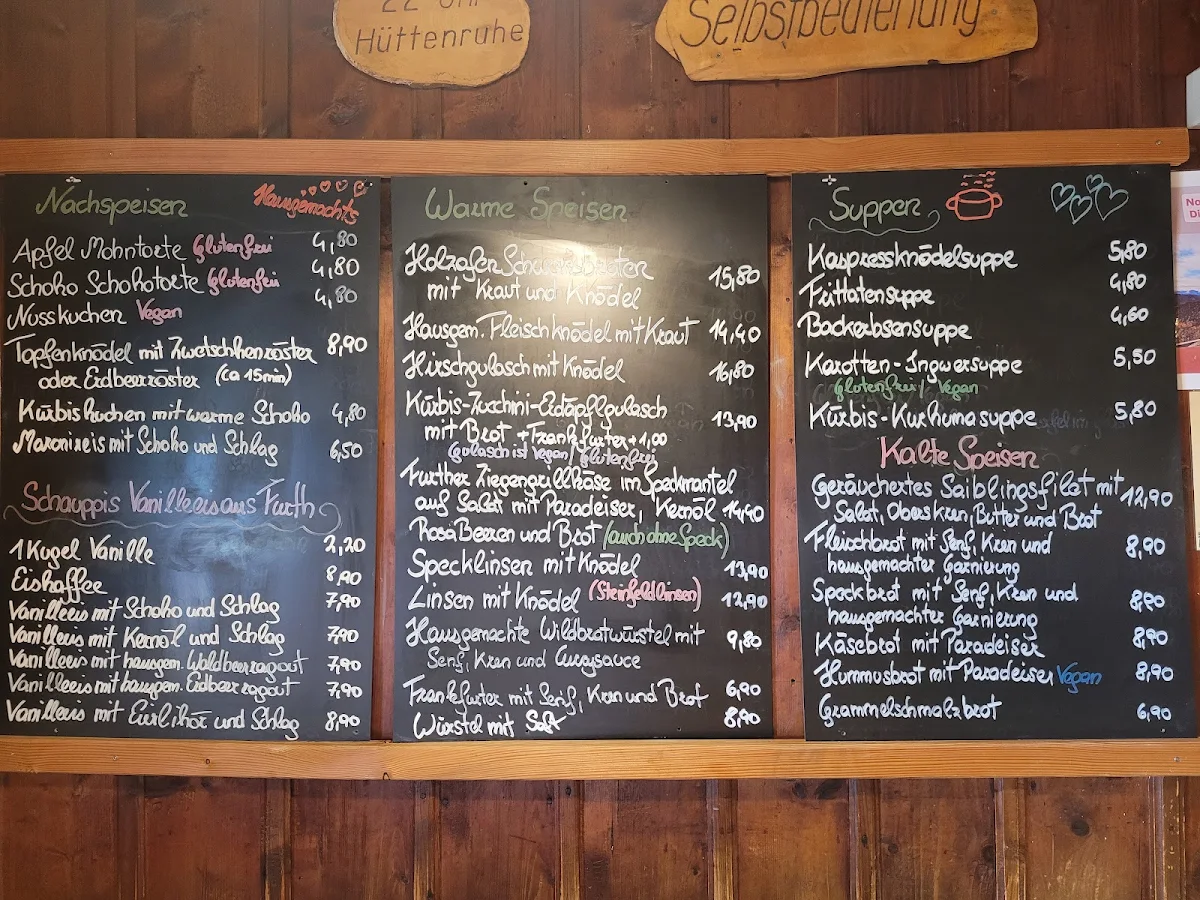 22 Uhr
Hüttenruhe
Selbstbedienung
Nachspeisen Hausgemachts
Apfel Mohntorte Glutenfrei 4,80
Schoko Schokotorte Glutenfrei 4,80
Nusskuchen Vegan 4,80
Topfenknödel mit Zwetschkenröster 8,90
oder Erdbeerröster (ca 15min)
Kürbiskuchen mit warme Schoko 4,80
Maronireis mit Schoko und Schlag 6,50
Schauppis Vanilleeis aus Furth
1 Kugel Vanille 2,20
Eiskaffee 8,90
Vanilleeis mit Schoko und Schlag 7,90
Vanilleeis mit Kernöl und Schlag 7,90
Vanilleeis mit hausgem. Waldbeerragout 7,90
Vanilleeis mit hausgem. Erdbeerragout 7,90
Vanilleeis mit Eierlikör und Schlag 8,90
Warme Speisen
Holzofen Schweinsbraten 15,80
mit Kraut und Knödel
Hausgem. Fleischknödel mit Kraut 14,40
Hirschgulasch mit Knödel 16,80
Kürbis-Zucchini-Erdäpflgulasch 13,90
mit Brot + Frankfurter + 1,00
Gulasch ist Vegan / Glutenfrei
Further Ziegengrillkäse im Speckmantel
auf Salat mit Paradeiser, Kernöl 14,40
Rosa Beeren und Brot (auch ohne Speck)
Specklinsen mit Knödel 13,90
Linsen mit Knödel (Steinfeldlinsen) 12,90
Hausgemachte Wildbratwürstel mit 9,80
Senf, Kren und Currysauce
Frankfurter mit Senf, Kren und Brot 6,90
Würstel mit Saft 8,90
Suppen
Kaspressknödelsuppe 5,80
Frittatensuppe 4,80
Backerbsensuppe 4,60
Karotten-Ingwersuppe 5,50
Glutenfrei / Vegan
Kürbis-Kurkumasuppe 5,80
Kalte Speisen
Geräuchertes Saiblingsfilet mit 12,90
Salat, Oberskren, Butter und Brot
Fleischbrot mit Senf, Kren und 8,90
hausgemachter Garnierung
Speckbrot mit Senf, Kren und 8,90
hausgemachter Garnierung
Käsebrot mit Paradeiser 8,90
Hummusbrot mit Paradeiser Vegan 8,90
Grammelschmalzbrot 6,90